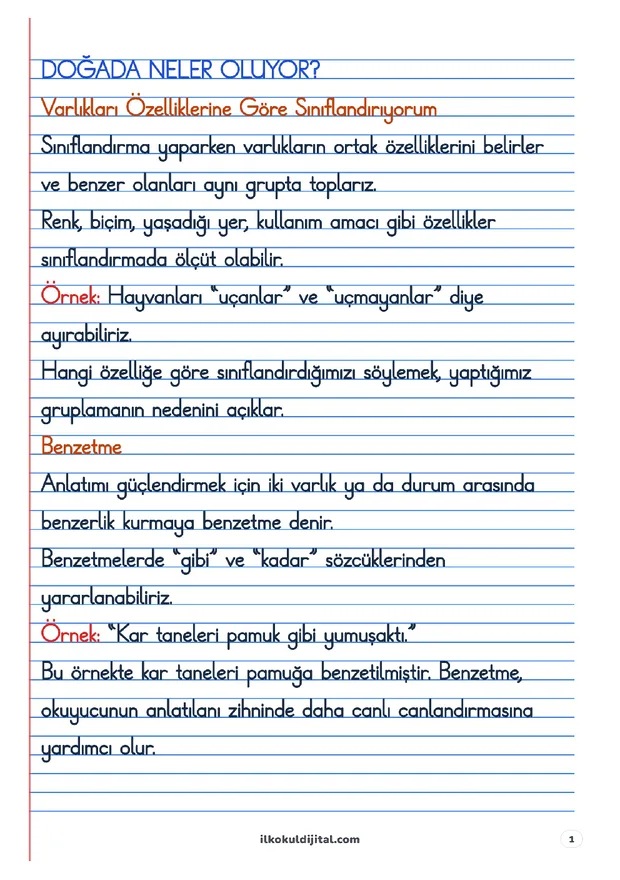 DOĞADA NELER OLUYOR?
Varlıkları Özelliklerine Göre Sınıflandırıyorum
Sınıflandırma yaparken varlıkların ortak özelliklerini belirler
ve benzer olanları aynı grupta toplarız.
Renk, biçim, yaşadığı yer, kullanım amacı gibi özellikler
sınıflandırmada ölçüt olabilir.
Örnek: Hayvanları “uçanlar” ve “uçmayanlar” diye
ayırabiliriz.
Hangi özelliğe göre sınıflandırdığımızı söylemek, yaptığımız
gruplamanın nedenini açıklar.
Benzetme
Anlatımı güçlendirmek için iki varlık ya da durum arasında
benzerlik kurmaya benzetme denir.
Benzetmelerde “gibi” ve “kadar” sözcüklerinden
yararlanabiliriz.
Örnek: “Kar taneleri pamuk gibi yumuşaktı.”
Bu örnekte kar taneleri pamuğa benzetilmiştir. Benzetme,
okuyucunun anlatılanı zihninde daha canlı canlandırmasına
yardımcı olur.
ilkokuldijital.com
1